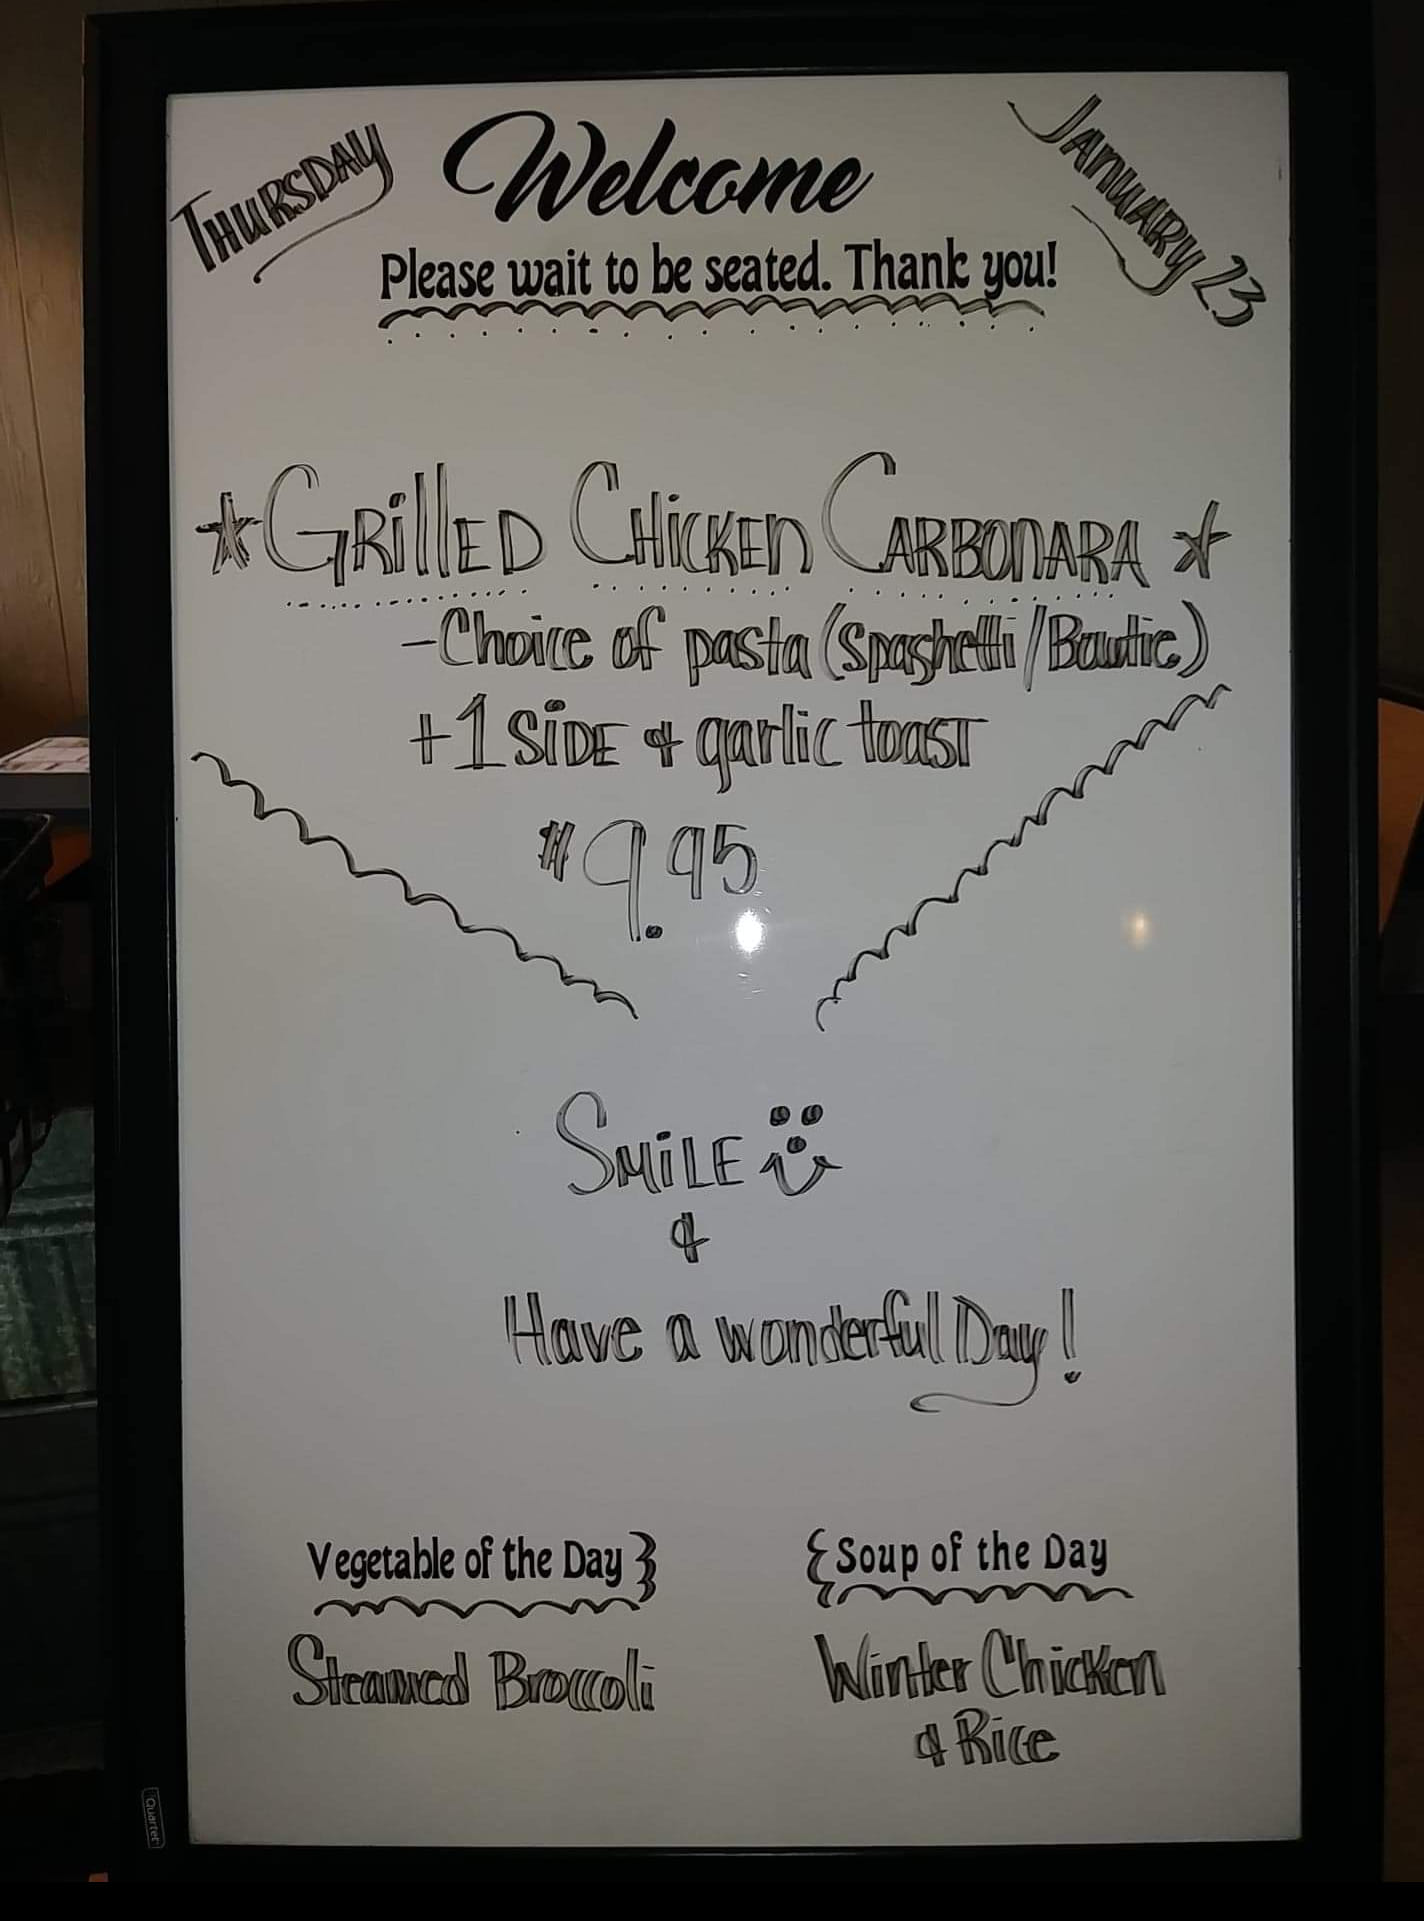 THURSDAY
Welcome
JANUARY 23
Please wait to be seated. Thank you!
GRillED CHiCKEn CARBOnARA
-Choice of pasta (Spaghetti/Bowtie)
+1 SiDE & garlic toasT
$9.95
SMiLE
&
Have a wonderful Day!
Vegetable of the Day}
Steamed Broccoli
{Soup of the Day
Winter Chicken
& Rice
Quartet